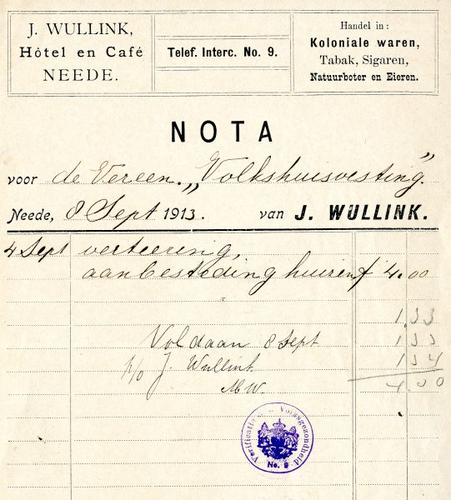 J. WULLINK,
Hôtel en Café
NEEDE.
Telef. Interc. No. 9.
Handel in:
Koloniale waren,
Tabak, Sigaren,
Natuurboter en Eieren.
NOTA
voor de Vereen. „Volkshuisvesting".
Neede, 8 Sept 1913. van J. WULLINK.
4 Sept verteering,
aanbesteding huizen f 4.00
1.33
Voldaan 8 Sept 133
p/o J. Wullink 134
M.W. 4.00
Verificatie Volksgezondheid
No. 9